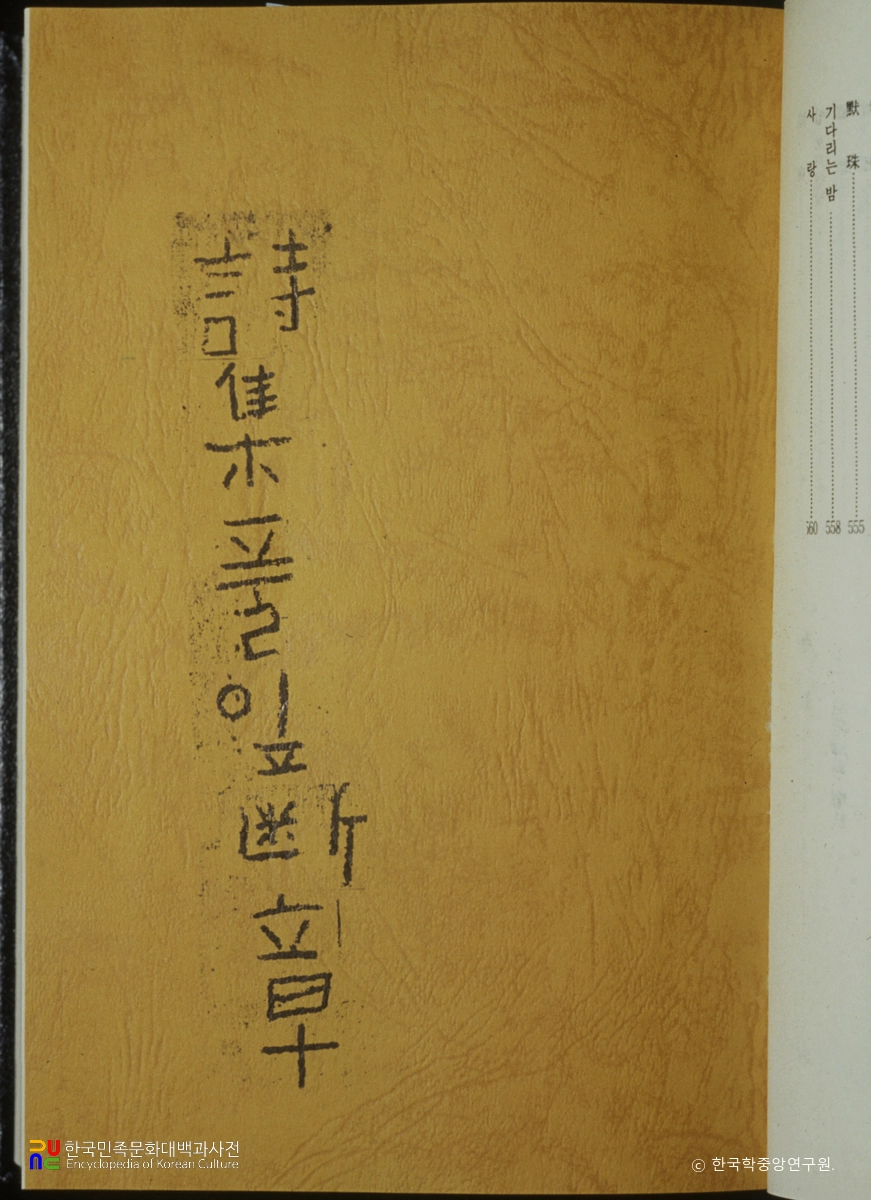 詩集풀잎斷章
默珠 555
기다리는 밤 558
사랑 560
한국민족문화대백과사전
Encyclopedia of Korean Culture
© 한국학중앙연구원.